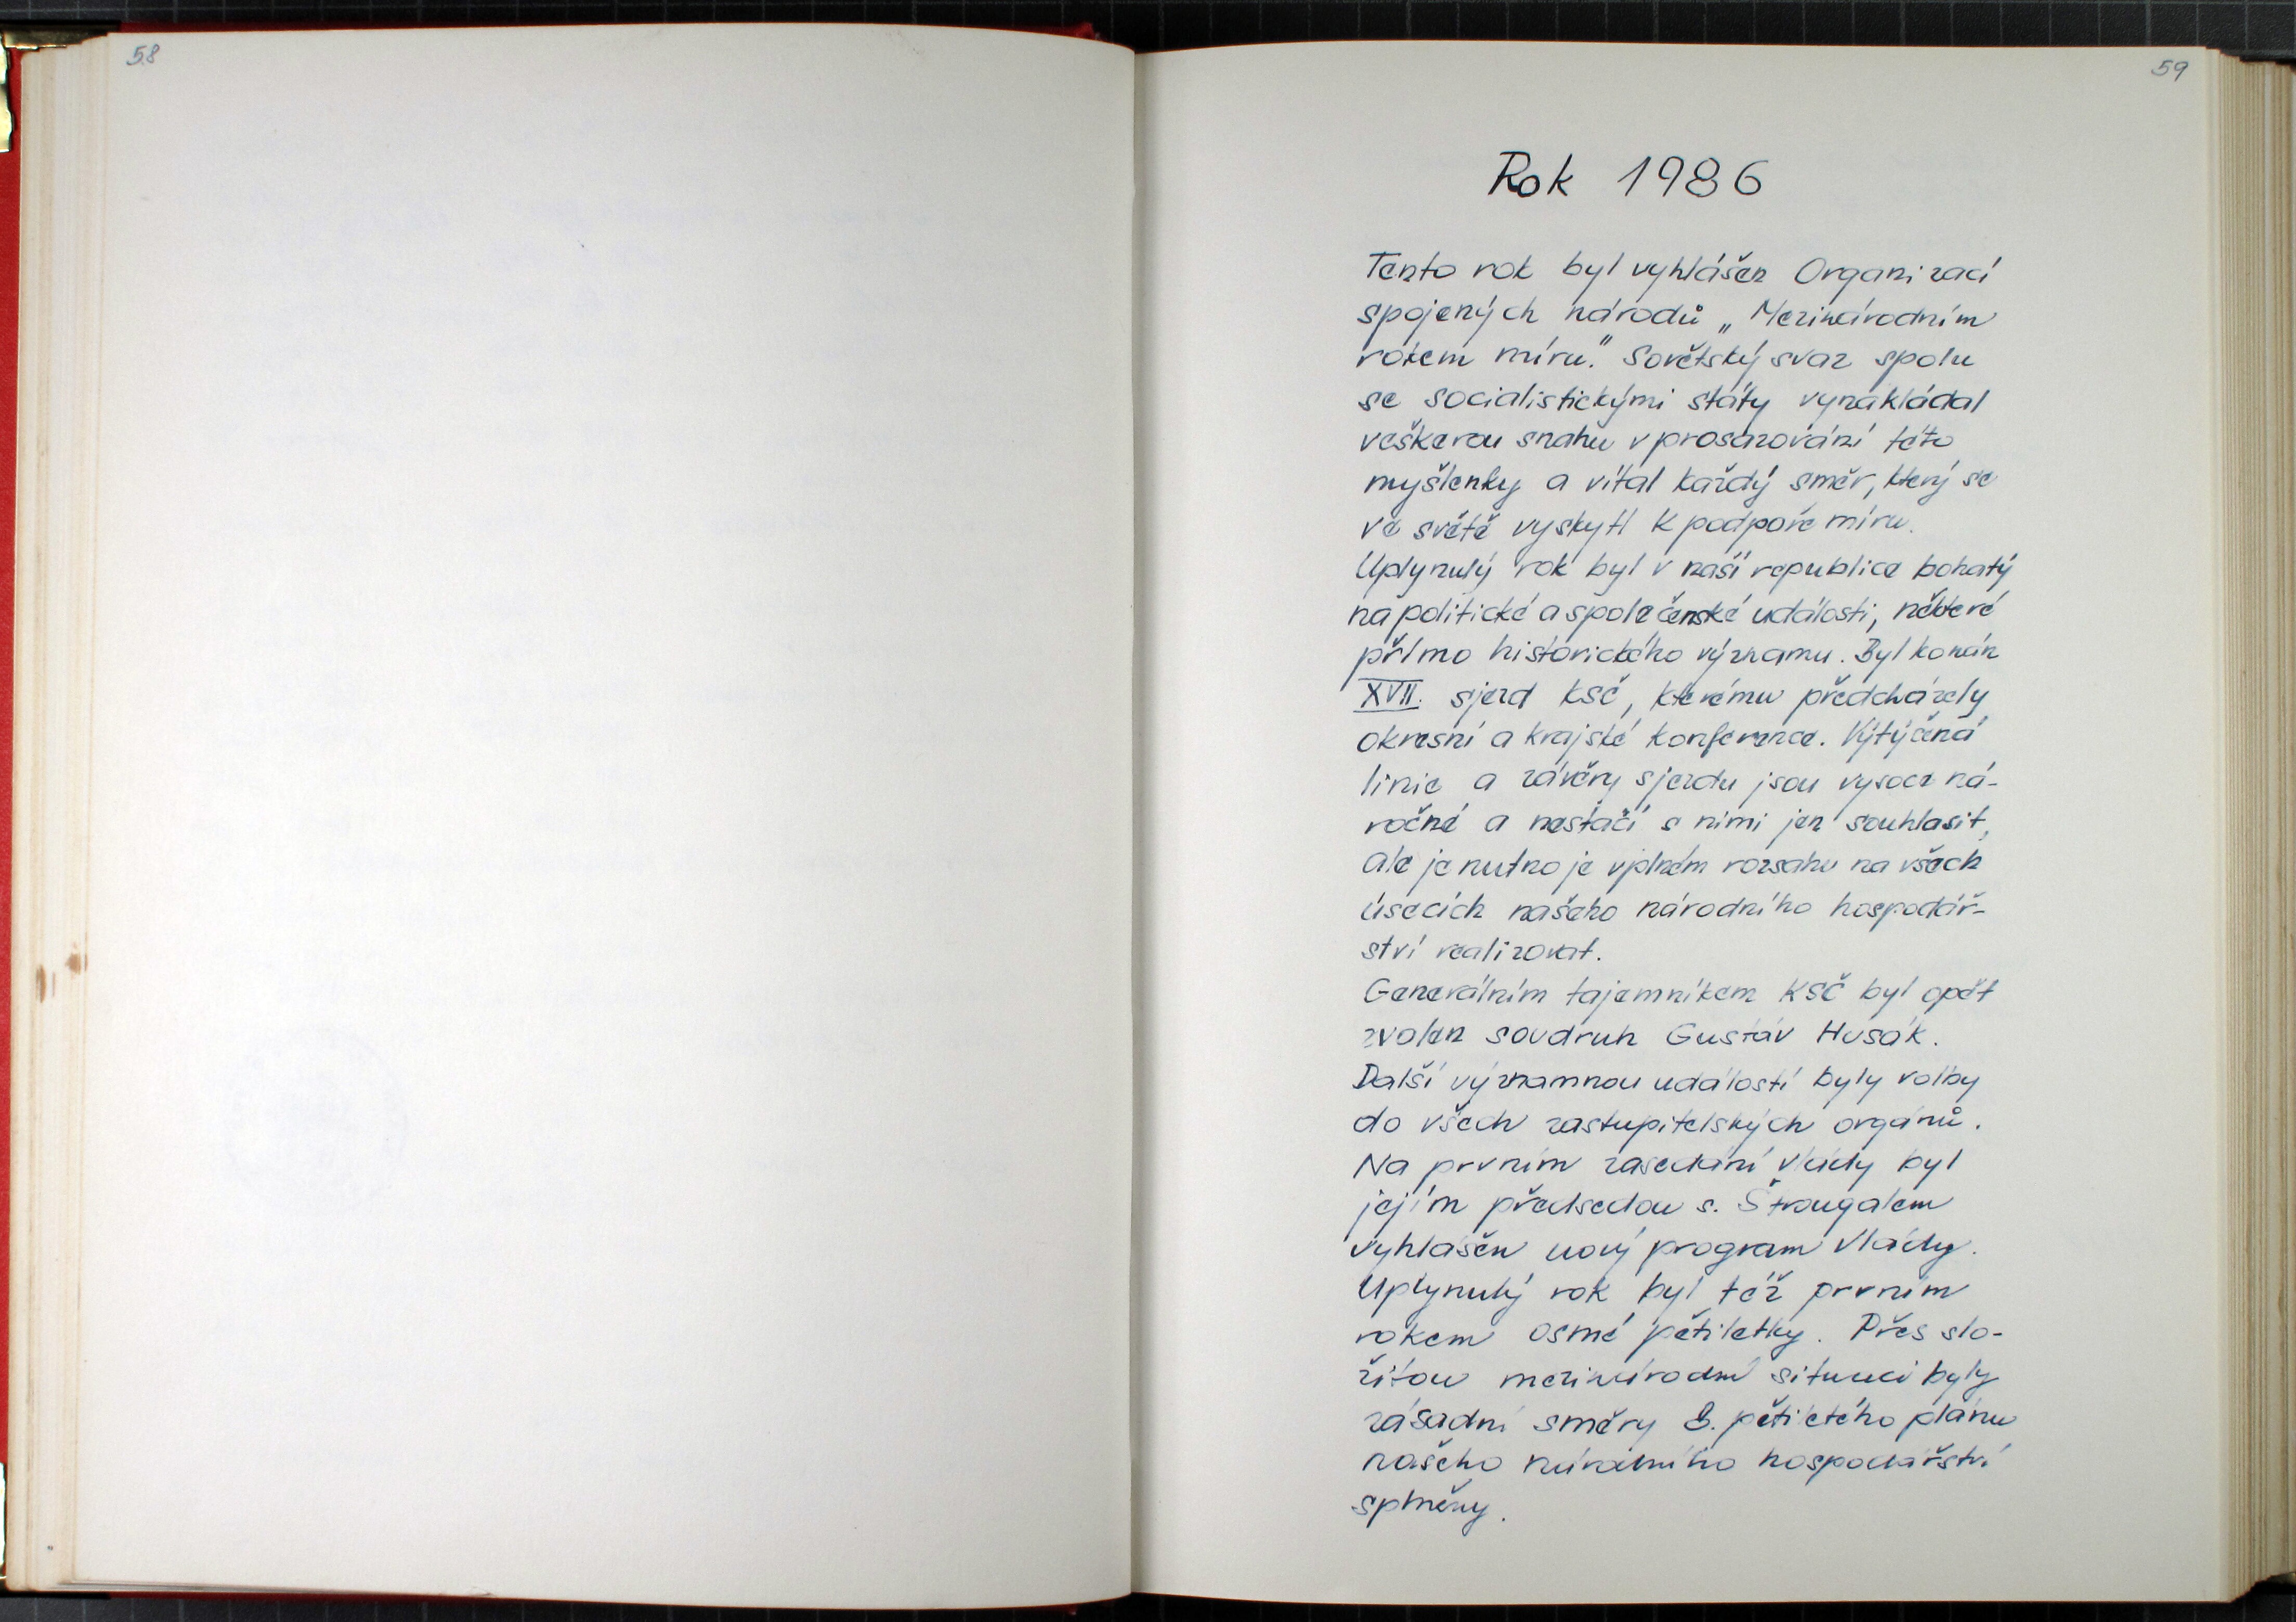 58
59
Rok 1986
Tento rok byl vyhlášen Organizací
spojených národů „Mezinárodním
rokem míru." Sovětský svaz spolu
se socialistickými státy vynakládal
veškerou snahu v prosazování této
myšlenky a vítal každý směr, který se
ve světě vyskytl k podpoře míru.
Uplynulý rok byl v naší republice bohatý
na politické a společenské události, některé
přímo historického významu. Byl konán
XVII. sjezd KSČ, kterému předcházely
okresní a krajské konference. Výtýčená
linie a závěry sjezdu jsou vysoce ná-
ročné a nestačí s nimi jen souhlasit,
ale je nutno je v plném rozsahu na všech
úsecích našeho národního hospodář-
ství realizovat.
Generálním tajemníkem KSČ byl opět
zvolen soudruh Gustáv Husák.
Další významnou událostí byly volby
do všech zastupitelských orgánů.
Na prvním zasedání vlády byl
jejím předsedou s. Štrougalem
vyhlášen nový program vlády.
Uplynulý rok byl též prvním
rokem osmé pětiletky. Přes slo-
žitou mezinárodní situaci byly
zásadní směry 8. pětiletého plánu
našeho národního hospodářství
splněny.